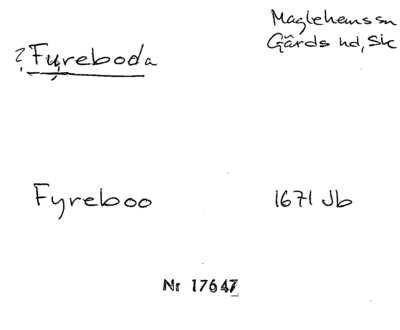 Maglehems sn
? Fyreboda
Gärds hd, Sk
Fyreboo 1671 Jb
Nr 17647